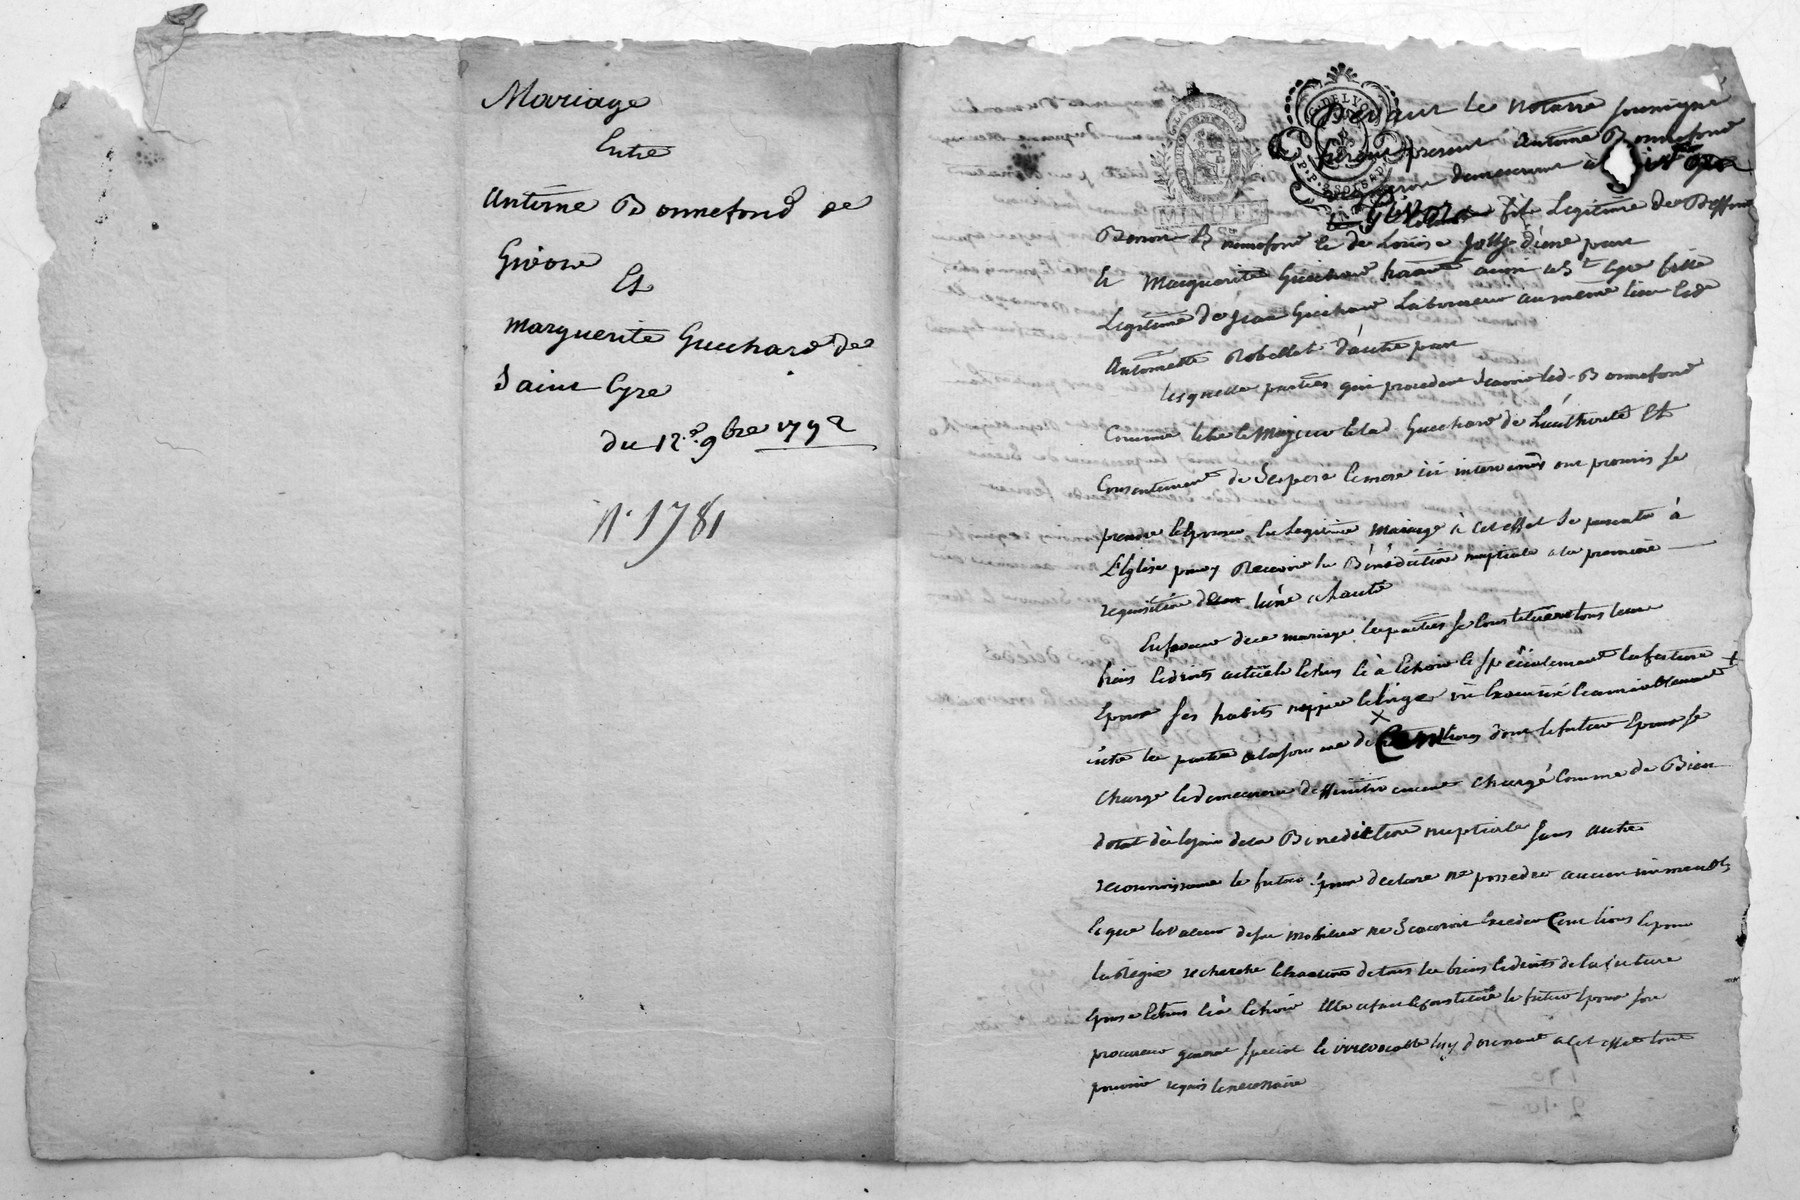 Mariage
Entre
Antoine Bonnefond de
Givors
Et
Marguerite Guichard de
Saint Cyre
du 12.e 9bre 1792
N.o 1781
MINUTE
Devant le notaire soussigné
furent present Antoine Bonnefond
demeurant à Givors
Givors fils Legitime de Deffunt
Bonnefond et de Louise Jolly d'une part
Et Marguerite Guichard aussi a St Cyre fille
Legitime de Jean Guichard Laboureur au meme lieu et de
Antoinette Robellet d'autre part
Lesquelles parties qui procedent Scavoir led. Bonnefond
Comme libre et Majeur et lad Guichard de L'authorité Et
Consentement de Ses pere et mere ici intervenus ont promis se
prendre et Epouser en Legitime mariage à cet effet de se presenter à
L'Eglise pour y Recevoir la Bénédiction nuptiale a la premiere
requisition de l'une a l'autre
En faveur de ce mariage les parties se Constituent tous leurs
biens et droits actuels Echus et à Echoir et specialement la future
Epouse ses habits nippes et linge
entre les parties a la somme de Cent livres dont le futur Epoux se
Charge et demeurera deffinitivement Chargé Comme de Bien
dotal dès le jour de la Benediction nuptiale sans autre
reconnoissance le futur Epoux declare ne posseder aucun immeubles
Et que la valeur de son mobilier ne Scauroit Exceder Cent livres Et pour
la Regie recherche et exaction de tous les biens et droits de la future
Epouse Echus et à Echoir Elle a fait et constitué le futur Epoux son
procureur general special et irrevocable luy donnant a cet effet tout
pouvoir requis et necessaire